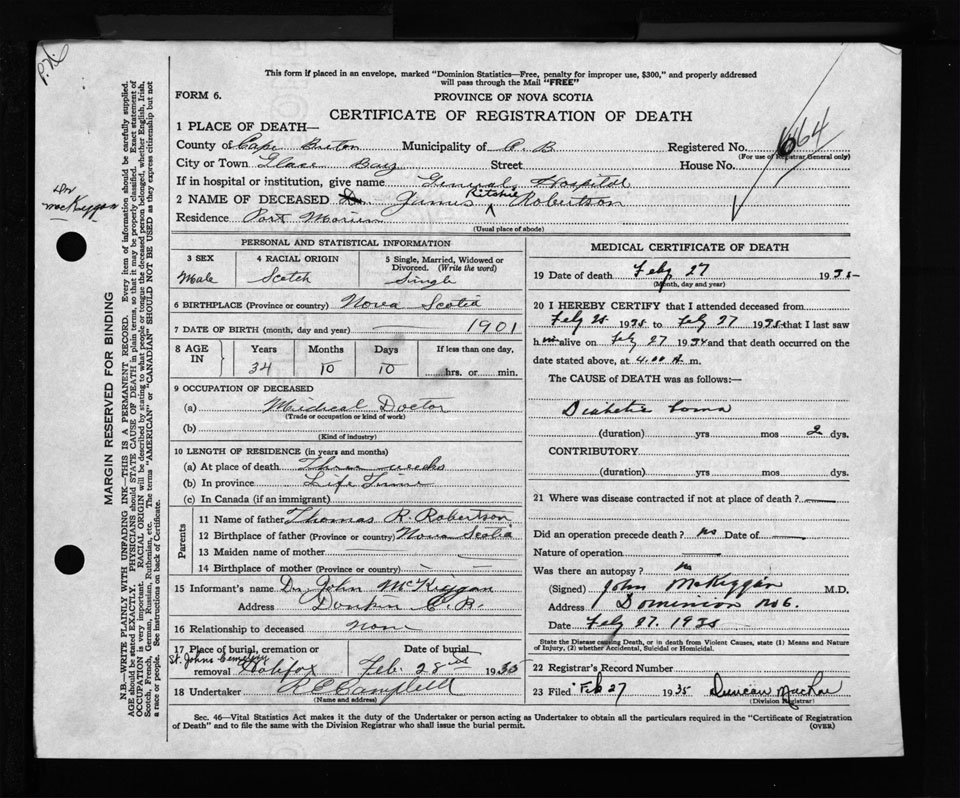 P.N.
This form if placed in an envelope, marked "Dominion Statistics—Free, penalty for improper use, $300," and properly addressed
will pass through the Mail "FREE"
FORM 6.
PROVINCE OF NOVA SCOTIA
CERTIFICATE OF REGISTRATION OF DEATH
1 PLACE OF DEATH—
County of Cape Breton Municipality of C. B Registered No. 664
(For use of Registrar General only)
City or Town Glace Bay Street House No.
If in hospital or institution, give name General Hospital
2 NAME OF DECEASED Dr. James Ritchie Robertson
Residence Port Morien
(Usual place of abode)
Dr
MacKiggan
MARGIN RESERVED FOR BINDING
N.B.—WRITE PLAINLY WITH UNFADING INK—THIS IS A PERMANENT RECORD. Every item of information should be carefully supplied.
AGE should be stated EXACTLY. PHYSICIANS should STATE CAUSE OF DEATH in plain terms, so that it may be properly classified. Exact statement of
OCCUPATION is very important. RACIAL ORIGIN will be described by stating to what people or tongue the deceased person belonged, whether English, Irish,
Scotch, French, German, Russian, Ruthenian, etc. The terms "AMERICAN" or "CANADIAN" SHOULD NOT BE USED as they express citizenship but not
a race or people. See instructions on back of Certificate.
PERSONAL AND STATISTICAL INFORMATION
3 SEX
Male
4 RACIAL ORIGIN
Scotch
5 Single, Married, Widowed or
Divorced. (Write the word)
Single
6 BIRTHPLACE (Province or country) Nova Scotia
7 DATE OF BIRTH (month, day and year) 1901
8 AGE
IN
Years Months Days If less than one day,
34 10 10 hrs. or min.
9 OCCUPATION OF DECEASED
(a) Medical Doctor
(Trade or occupation or kind of work)
(b)
(Kind of industry)
10 LENGTH OF RESIDENCE (in years and months)
(a) At place of death Three weeks
(b) In province Life Time
(c) In Canada (if an immigrant)
Parents
11 Name of father Thomas R. Robertson
12 Birthplace of father (Province or country) Nova Scotia
13 Maiden name of mother
14 Birthplace of mother (Province or country)
15 Informant's name Dr John McKiggan
Address Donkin C. B.
16 Relationship to deceased None
17 Place of burial, cremation or
removal St. Johns Cemetery Halifax
Date of burial
Feb. 28 1935
18 Undertaker R C Campbell
(Name and address)
MEDICAL CERTIFICATE OF DEATH
19 Date of death Feby 27 1935
(Month, day and year)
20 I HEREBY CERTIFY that I attended deceased from
Feby 25 1935 to Feby 27 1935 that I last saw
him alive on Feby 27 1934 and that death occurred on the
date stated above, at 4.00 A m.
The CAUSE of DEATH was as follows:—
Diabetic Coma
(duration) yrs mos 2 dys.
CONTRIBUTORY
(duration) yrs mos dys.
21 Where was disease contracted if not at place of death?
Did an operation precede death? no Date of
Nature of operation
Was there an autopsy? no
(Signed) John McKiggan M.D.
Address Dominion No 6.
Date Feby 27. 1935
State the Disease causing Death, or in death from Violent Causes, state (1) Means and Nature
of Injury, (2) whether Accidental, Suicidal or Homicidal.
22 Registrar's Record Number
23 Filed Feb 27 1935 Duncan MacRae
(Division Registrar)
Sec. 46—Vital Statistics Act makes it the duty of the Undertaker or person acting as Undertaker to obtain all the particulars required in the "Certificate of Registration
of Death" and to file the same with the Division Registrar who shall issue the burial permit.
(OVER)